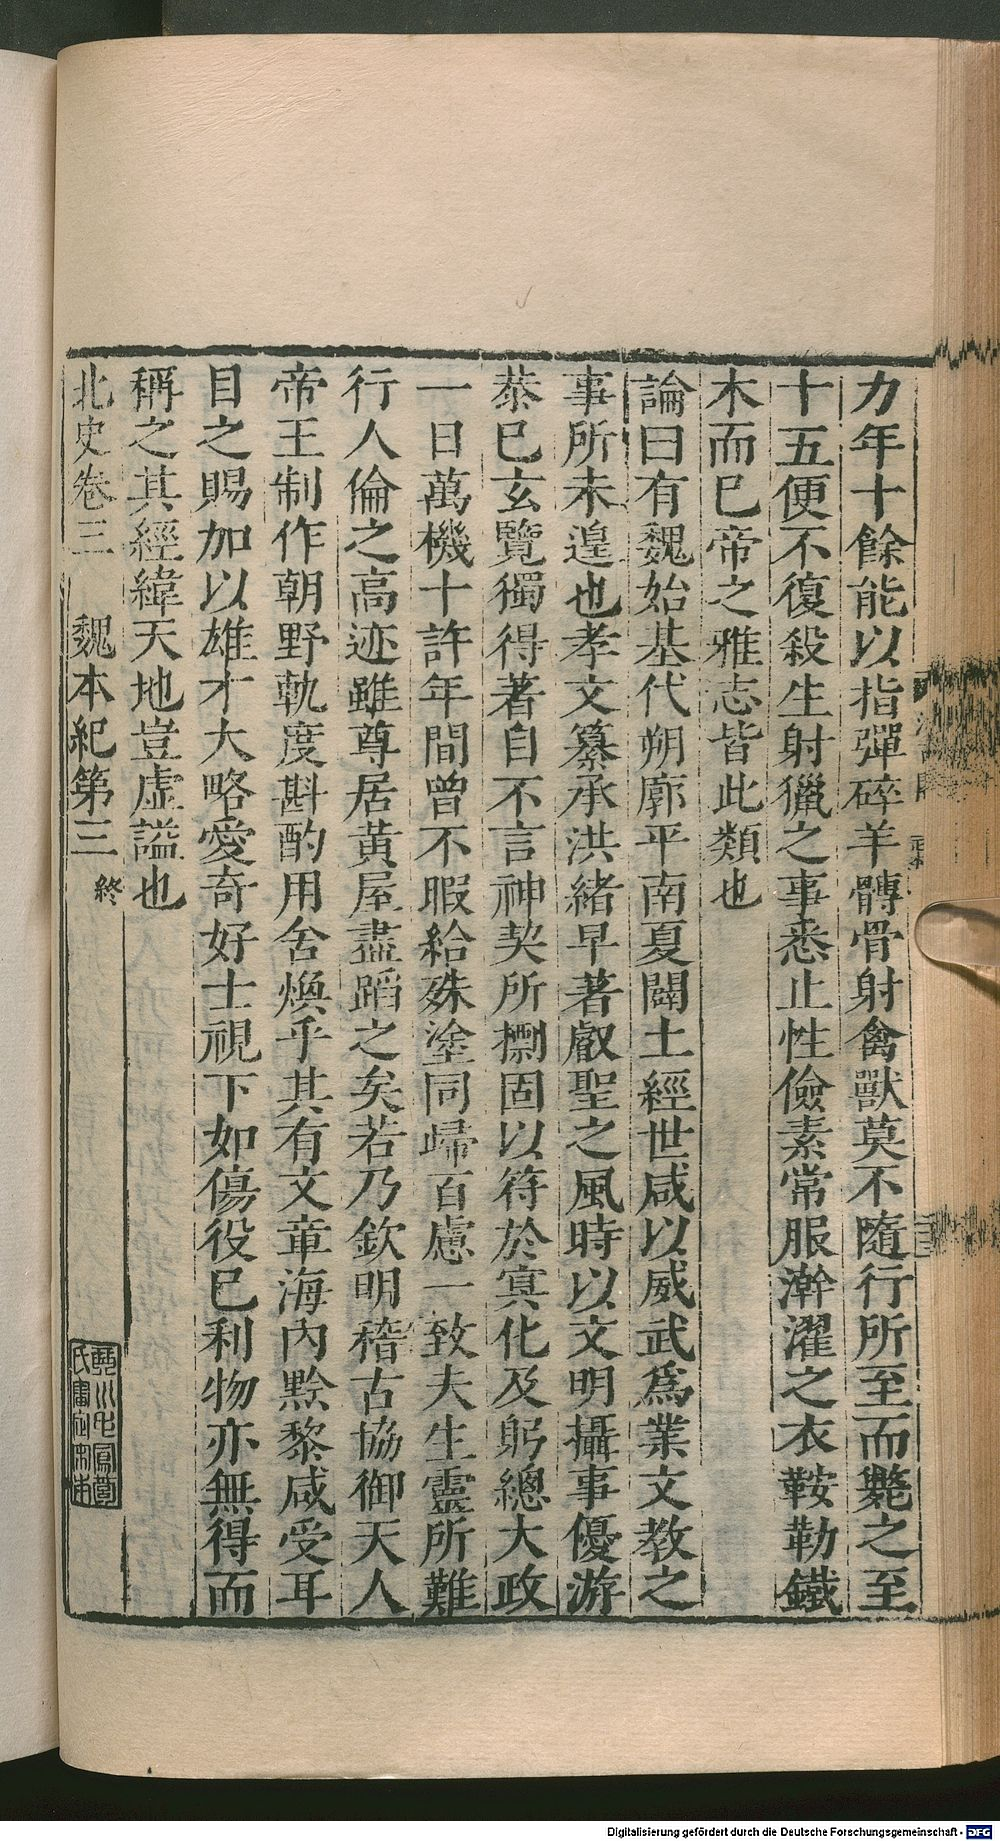 力年十餘能以指彈碎羊髆骨射禽獸莫不隨行所至而斃之至
十五便不復殺生射獵之事悉止性儉素常服澣濯之衣鞍勒鐵
木而已帝之雅志皆此類也
論曰有魏始基代朔廓平南夏闢土經世咸以威武爲業文教之
事所未遑也孝文纂承洪緒早著叡聖之風時以文明攝事優游
恭已玄覽獨得著自不言神契所摽固以符於冥化及躬總大政
一日萬機十許年間曾不暇給殊塗同歸百慮一致夫生靈所難
行人倫之高迹雖尊居黃屋盡蹈之矣若乃欽明稽古協御天人
帝王制作朝野軌度斟酌用舍煥乎其有文章海內黔黎咸受耳
目之賜加以雄才大略愛奇好士視下如傷役已利物亦無得而
稱之其經緯天地豈虛謚也
北史卷三 魏本紀第三 終
Digitalisierung gefördert durch die Deutsche Forschungsgemeinschaft - DFG